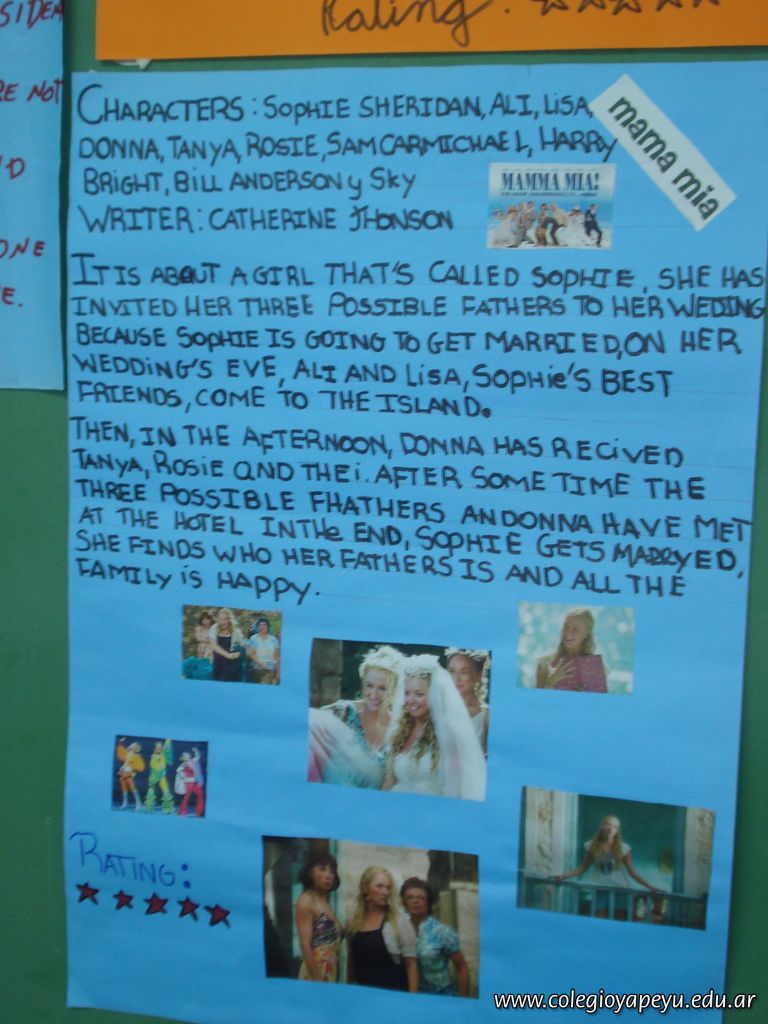 Rating: ☆☆☆☆☆
SIDEA
RE NOT
D
ONE
E.
mama mia
CHARACTERS: SOPHIE SHERIDAN, ALI, LISA,
DONNA, TANYA, ROSIE, SAM CARMICHAEL, HARRY
BRIGHT, BILL ANDERSON y SKY
WRITER: CATHERINE JHONSON
MAMMA MIA!
IT IS ABOUT A GIRL THAT'S CALLED SOPHIE, SHE HAS
INVITED HER THREE POSSIBLE FATHERS TO HER WEDING
BECAUSE SOPHIE IS GOING TO GET MARRIED, ON HER
WEDDING'S EVE, ALI AND LISA, SOPHIE'S BEST
FRIENDS, COME TO THE ISLAND.
THEN, IN THE AFTERNOON, DONNA HAS RECIVED
TANYA, ROSIE AND THEI. AFTER SOME TIME THE
THREE POSSIBLE FHATHERS AN DONNA HAVE MET
AT THE HOTEL IN THE END, SOPHIE GETS MARRYED,
SHE FINDS WHO HER FATHERS IS AND ALL THE
FAMILY IS HAPPY.
RATING:
★★★★★
www.colegioyapeyu.edu.ar